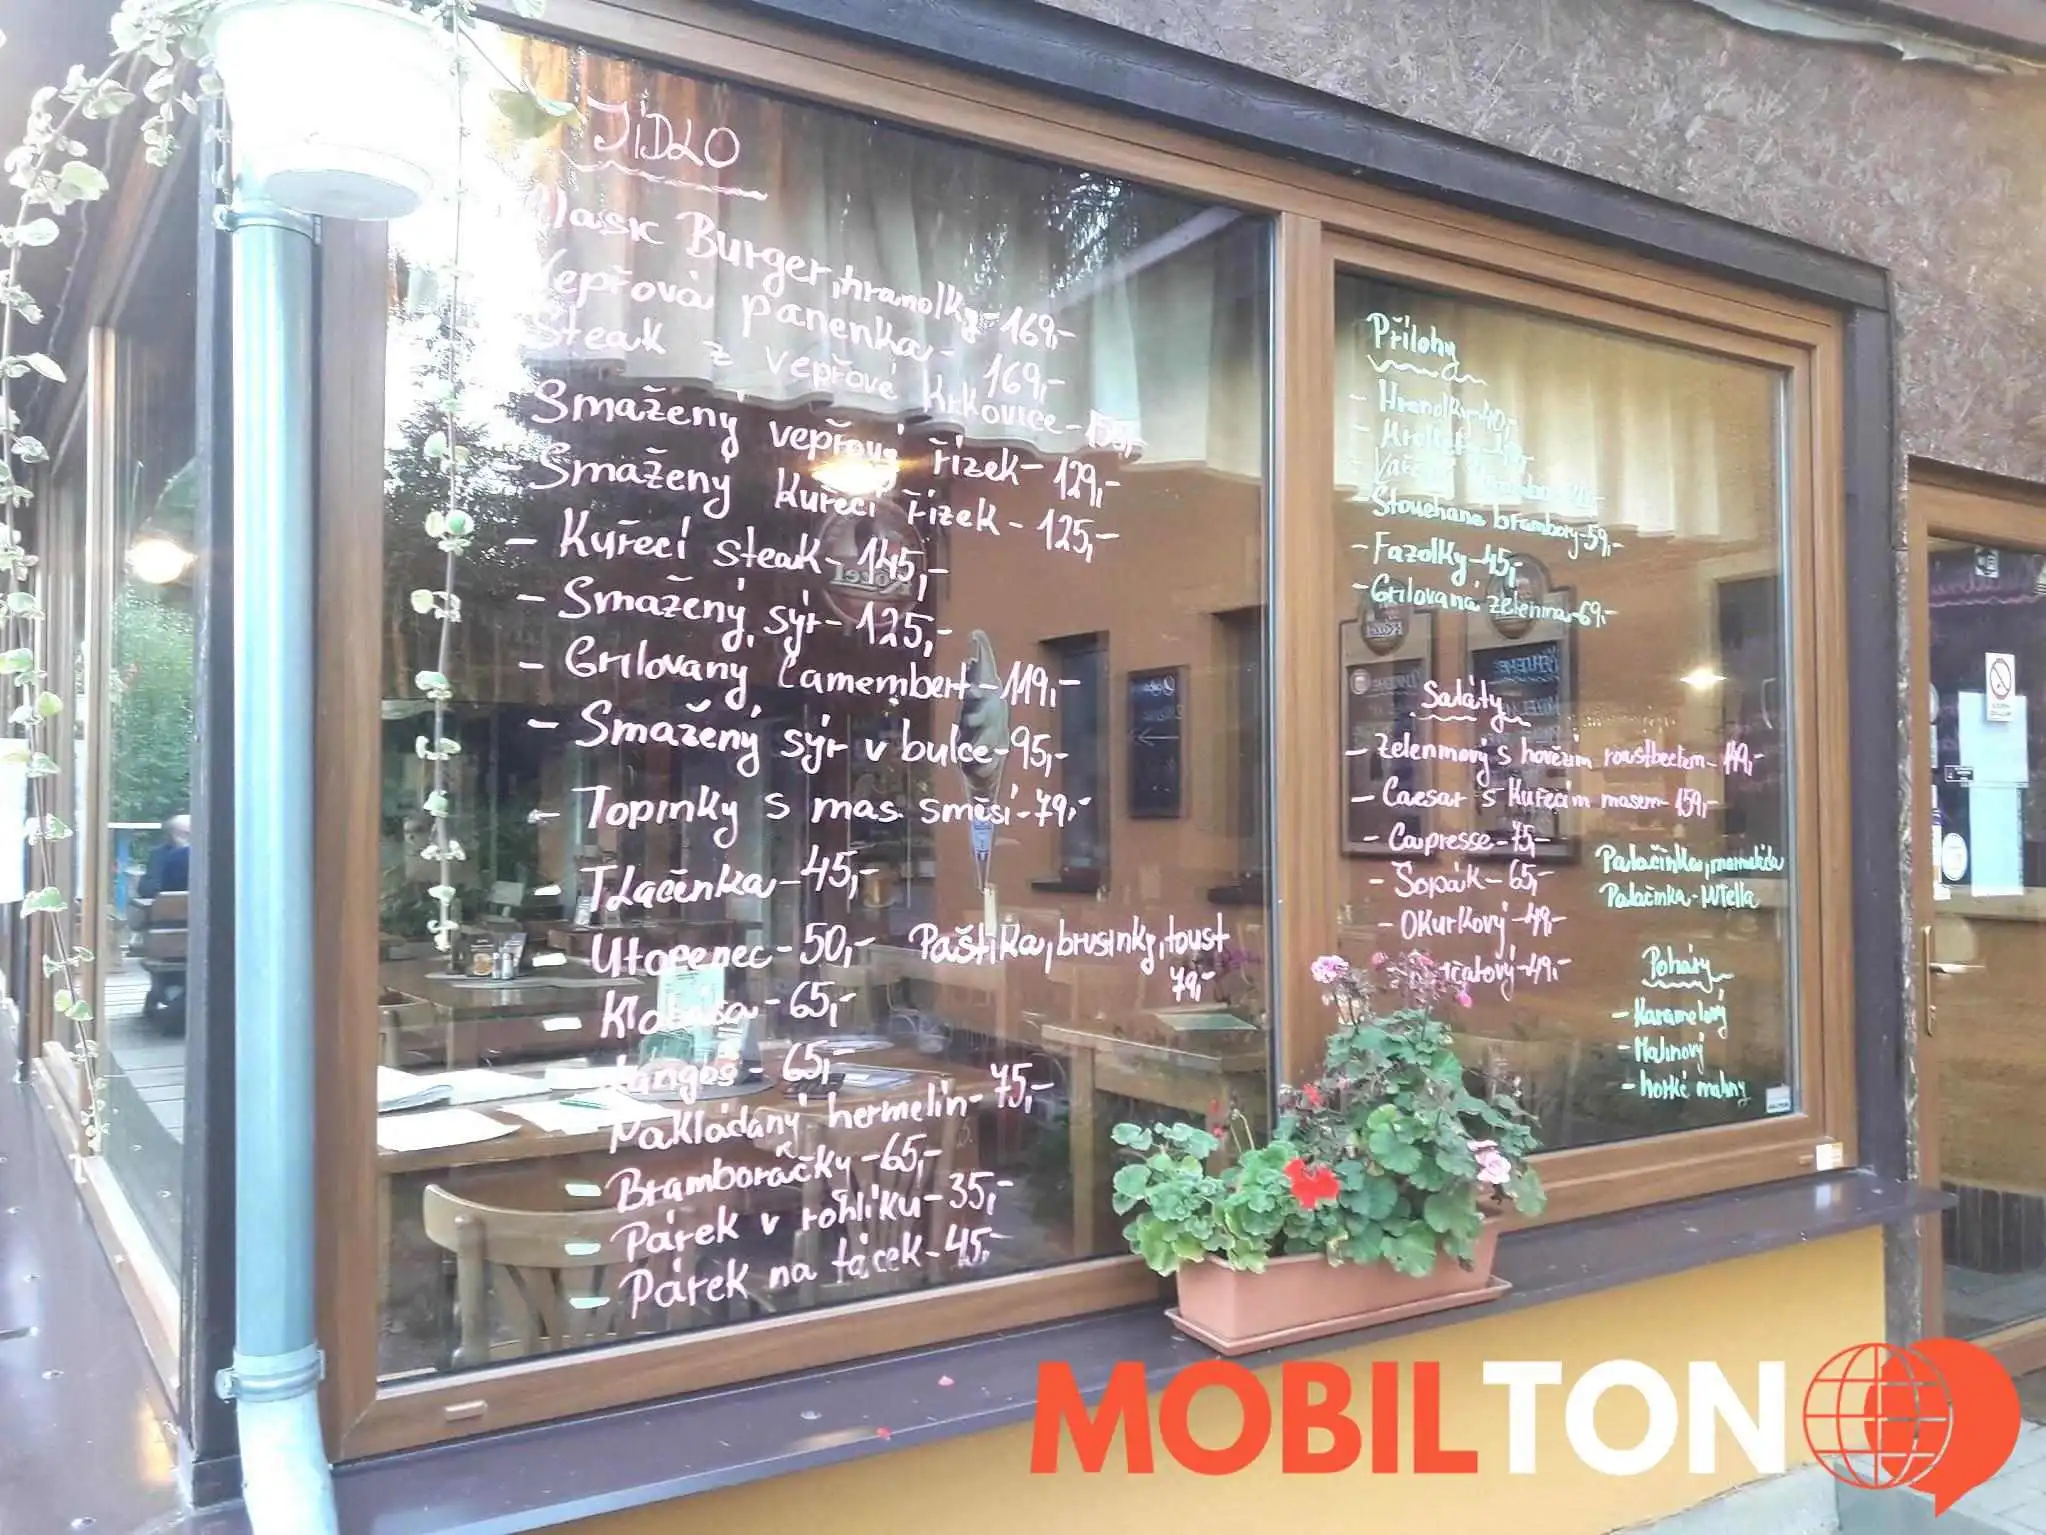 JÍDLO
Classic Burger, hranolky - 169,-
Vepřová panenka - 169,-
Steak z vepřové krkovice -
Smažený vepřový řízek - 129,-
- Smažený kuřecí řízek - 125,-
- Kuřecí steak - 145,-
- Smažený sýr - 125,-
- Grilovaný Camembert - 119,-
- Smažený sýr v bulce - 95,-
- Topinky s mas. směsí - 79,-
- Tlačenka - 45,-
- Utopenec - 50,-
Paštika, brusinky, toust
79,-
- Klobása - 65,-
Langoš - 65,-
Nakládaný hermelín - 75,-
- Bramboráčky - 65,-
- Párek v rohlíku - 35,-
- Párek na tácek - 45,-
Přílohy
- Hranolky - 40,-
- Šťouchané brambory - 59,-
- Fazolky - 45,-
- Grilovaná zelenina - 69,-
Saláty
- Zeleninový s hovězím roastbeefem -
- Caesar s kuřecím masem - 159,-
- Capresse - 75,-
- Šopák - 65,-
- Okurkový - 49,-
49,-
Palačinka, marmeláda
Palačinka - Nutella
Poháry
- Karamelový
- Malinový
- horké maliny
MOBILTON